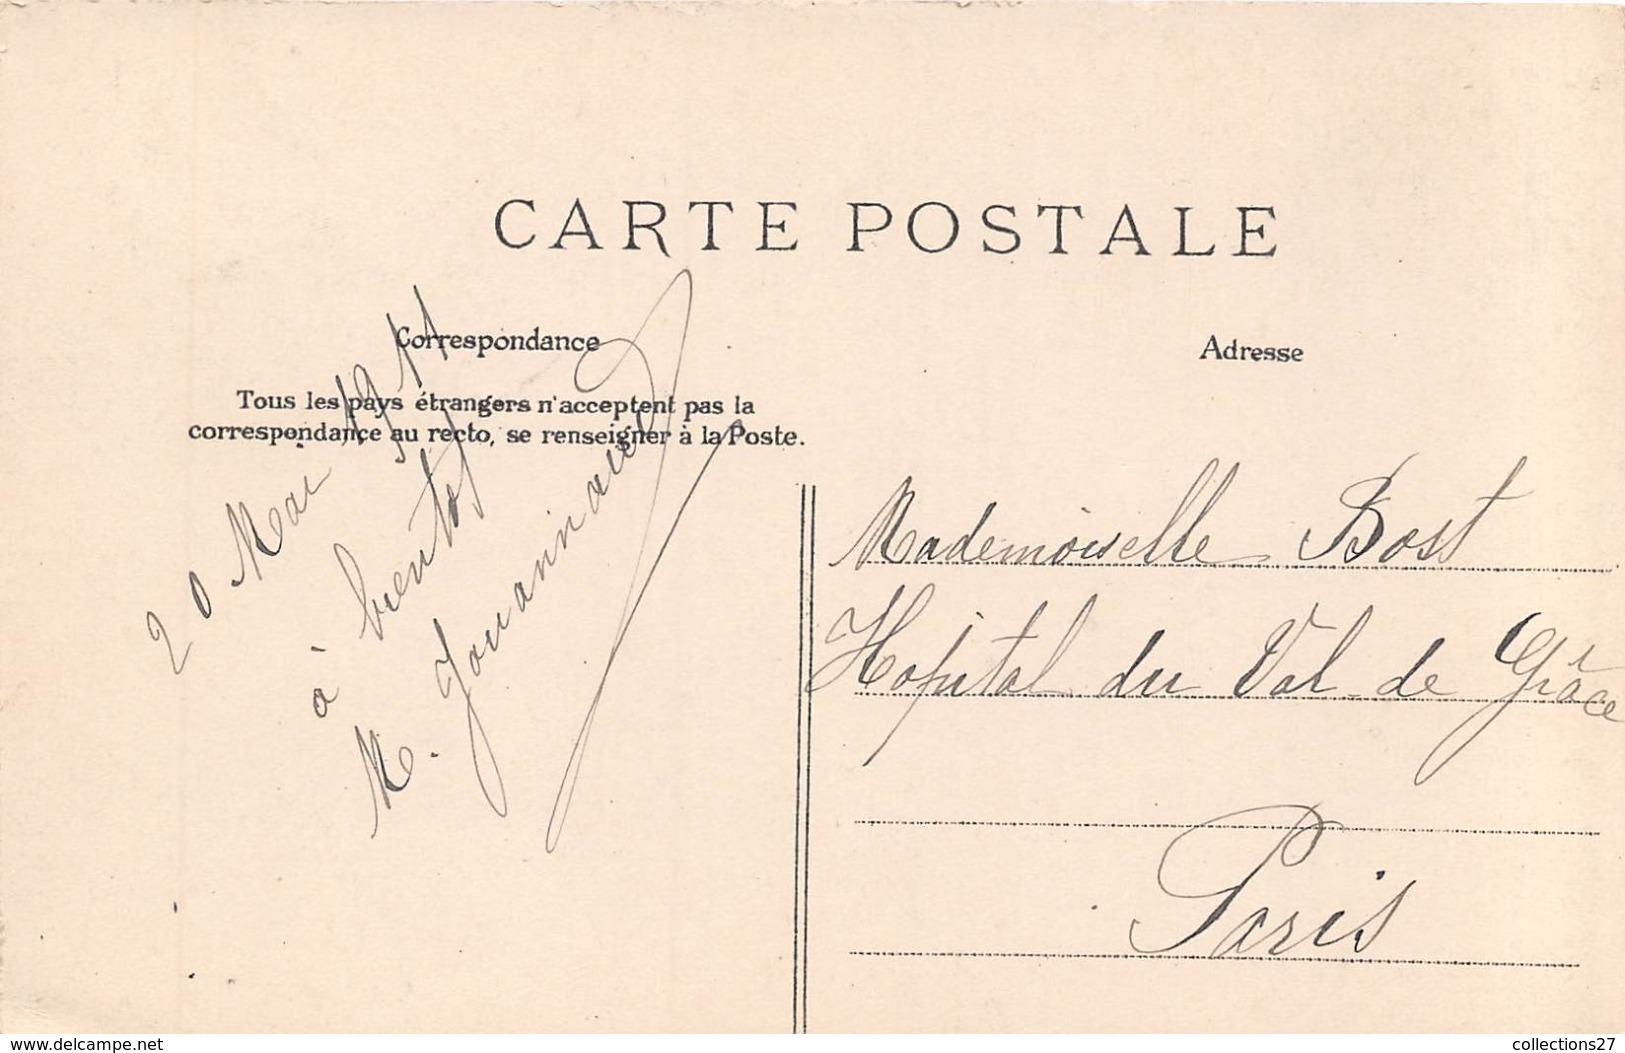 CARTE POSTALE
Correspondance
Tous les pays étrangers n'acceptent pas la
correspondance au recto, se renseigner à la Poste.
20 Mai 1911
à bientôt
M. Jouanninaud
Adresse
Mademoiselle Bost
Hôpital du Val de Grâce
Paris
www.delcampe.net
collections27